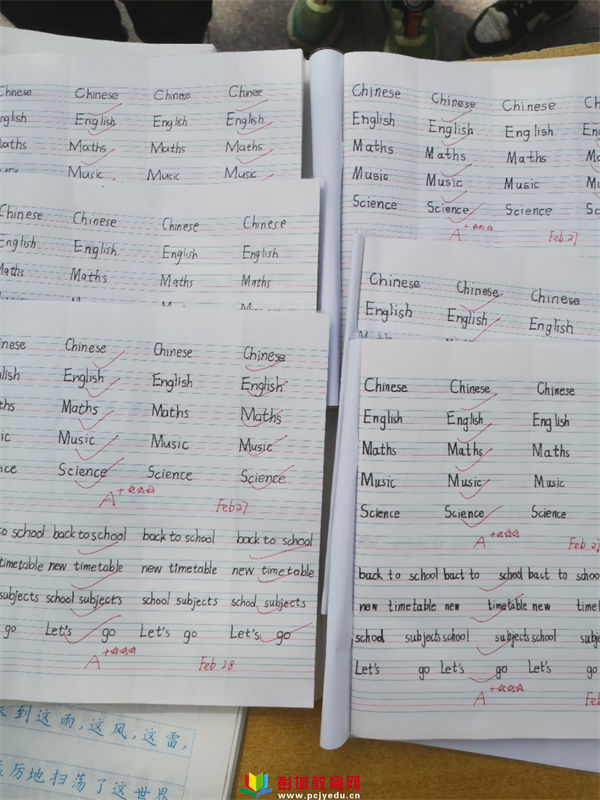 Chinese Chinese Chinese
English English English
Maths Maths Maths
Music Music
Chinese Chinese Chinese
English English English
Maths Maths Maths
Chinese Chinese Chinese
English English English
Maths Maths Maths
Music Music Music
Science Science Science
A+☆☆☆
Feb 27
to school back to school back to school back to school
timetable new timetable new timetable new timetable
subjects school subjects school subjects school subjects
go Let's go Let's go Let's go
A+☆☆☆ Feb 28
Chinese Chinese Chinese
English English English
Maths Maths Maths
Music Music Music
Science Science Science
A+☆☆☆ Feb 27
Chinese Chinese Chinese
English English English
Chinese Chinese Chinese
English English English
Maths Maths Maths
Music Music Music
Science Science Science
A+☆☆☆ Feb 27
back to school bact to school bact to schoo
new timetable new timetable new
school subjects school subjects school
Let's go Let's go Let's go
A+☆☆☆
到这雨,这风,这雷,
厉地扫荡了这世界
彭城教育网
www.pcjyedu.cn